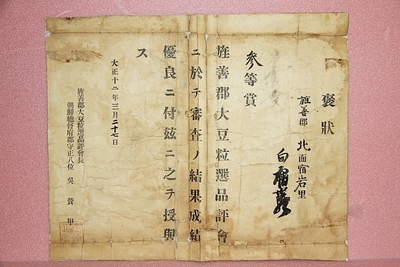 褒狀
旌善郡 北面宿岩里
白
參等賞
旌善郡大豆粒選品評會
ニ於テ審査ノ結果成績
優良ニ付玆ニ之テ授與
ス
大正十二年三月二十七日
旌善郡大豆粒選品評會長
朝鮮總督府郡守正八位 吳